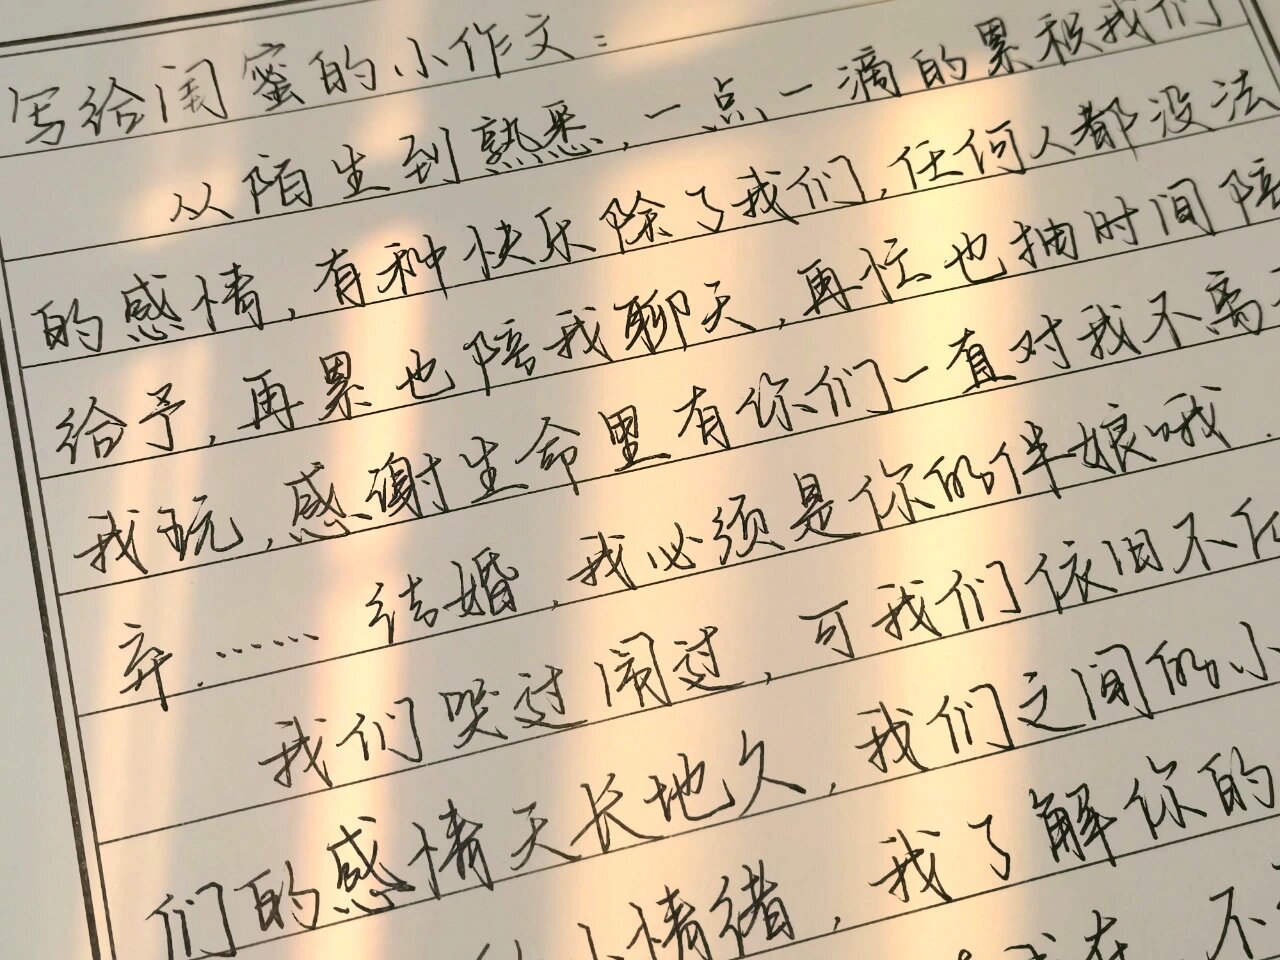 写给闺蜜的小作文：
从陌生到熟悉，一点一滴的累积我们
的感情，有种快乐除了我们，任何人都没法
给予，再累也陪我聊天，再忙也抽时间陪
我玩，感谢生命里有你们一直对我不离
弃……结婚，我必须是你的伴娘哦．
我们哭过闹过，可我们依旧不
们的感情天长地久，我们之间的小
小情绪，我了解你的
我在，不